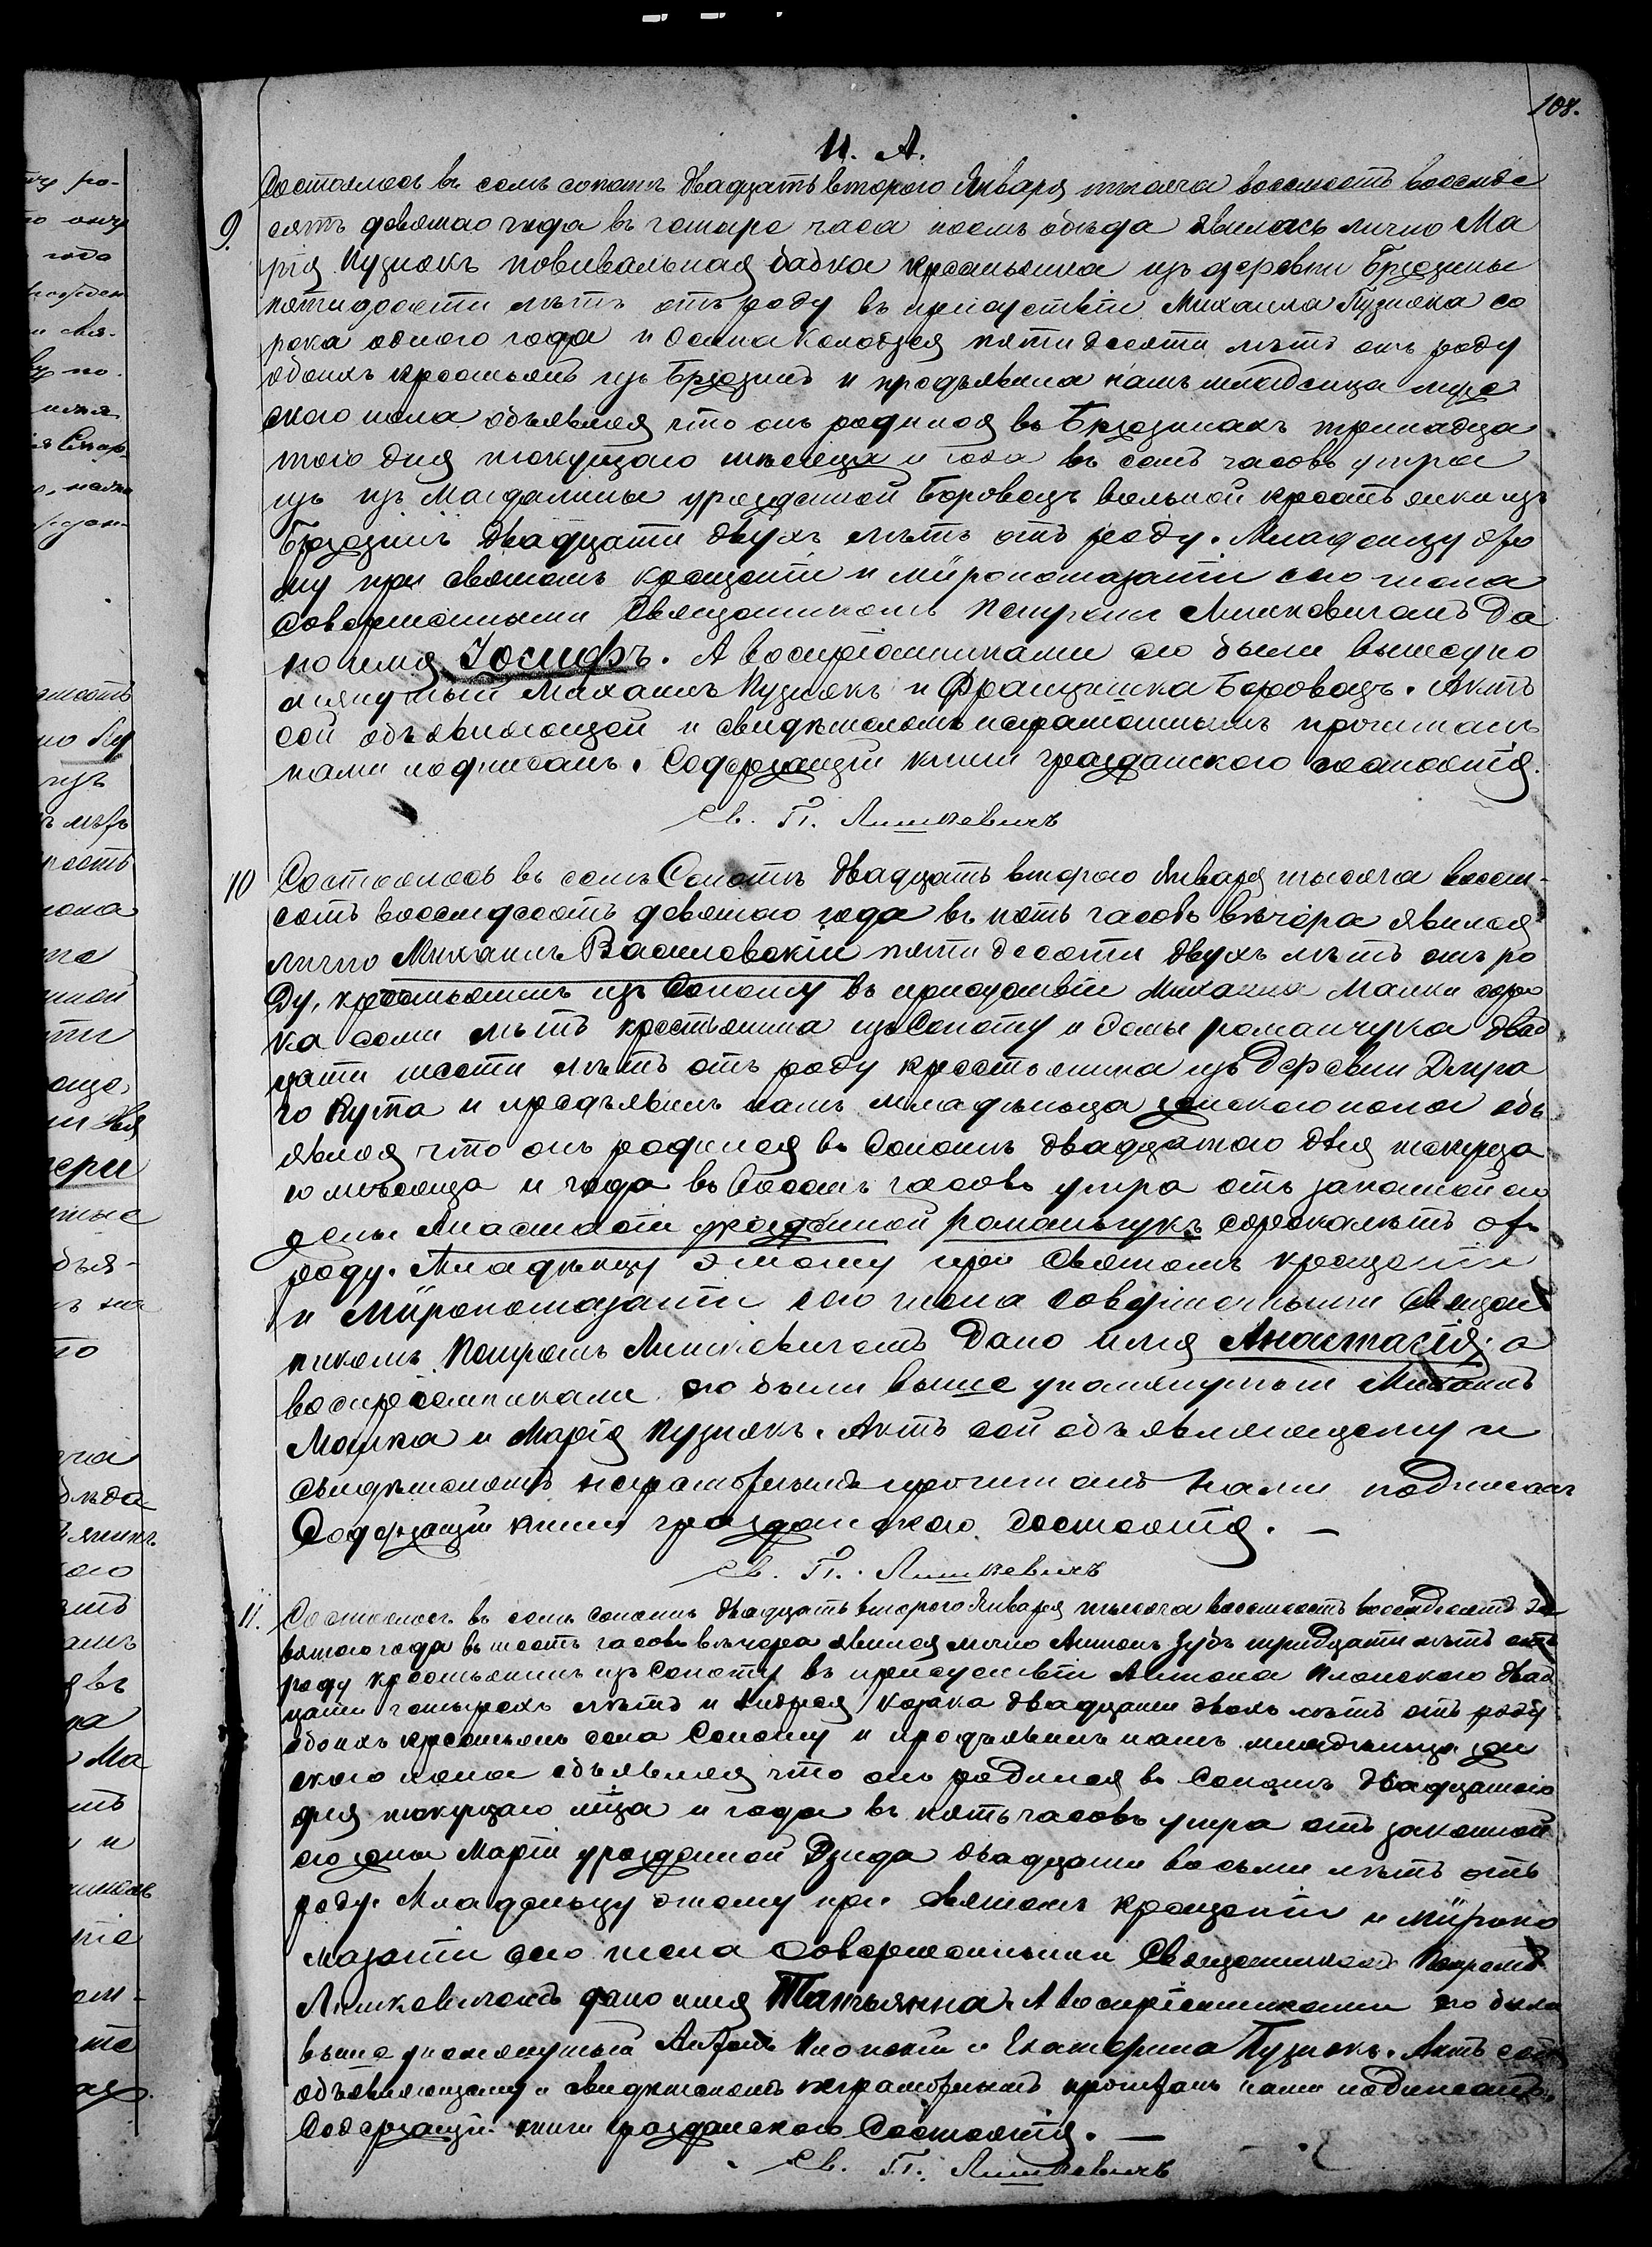 108.
11. А.
9.
Состоялось въ селѣ Сопотѣ двадцать второго Января тысяча восемьсотъ восемьде
сятъ девятаго года въ четыре часа послѣ обѣда явилась лично Ма
рія Пузіокъ повивальная бабка крестьянка изъ деревни Брезины
пятидесяти лѣтъ отъ роду въ присутствіи Михаила Пузіока со
рока одного года и Колодзея пятидесяти лѣтъ отъ роду
обоихъ крестьянъ изъ Брезинъ и предъявила намъ младенца муже
ского пола объявляя что онъ родился въ Брезинахъ тринадца
того дня текущаго мѣсяца и года въ семь часовъ утра
изъ изъ Магдалины урожденной Боровецъ вольной крестьянки изъ
Брезинъ двадцати двухъ лѣтъ отъ роду. Младенцу это
му при святомъ крещеніи и мѵропомазаніи сего числа
совершенными Священникомъ Петромъ Лишкевичемъ да
но имя Іосифъ. А воспріемниками его были вышеупо
мянутый Михаилъ Пузіокъ и Францишка Боровецъ. Актъ
сей объявляющей и свидѣтелямъ неграмотнымъ прочитанъ
нами подписанъ. Содержащій книги гражданского состоянія.
Св. П. Лишкевичъ
10
Состоялось въ селѣ Сопотѣ двадцать второго Января тысяча восемь-
сотъ восемдесятъ девятаго года въ пять часовъ вечера явился
лично Михаилъ Василовскій пятидесяти двухъ лѣтъ отъ ро
ду, крестьянинъ изъ Сопоту въ присутствіи Михаила Малки соро
ка семи лѣтъ крестьянина изъ Сопоту и Романчука двад
цати шести лѣтъ отъ роду крестьянина изъ деревни Длуга
го Кута и предъявилъ намъ младѣнца женского пола объ
являя что онъ родился въ Сопотѣ двадцатого дня текуща
го мѣсяца и года въ восемь часовъ утра отъ законной его
жены Анастасіи урожденной Романчукъ сорока лѣтъ отъ
роду. Младѣнцу этому при святомъ крещеніи
и Мѵропомазаніи сего числа совершенными Священ
никомъ Петромъ Лишкевичемъ дано имя Анастасія; а
воспріемниками его были выше упомянутый Михаилъ
Малка и Марія Пузіокъ. Актъ сей объявляющему и
свидѣтелямъ неграмотнымъ прочитанъ нами подписанъ
Содержащій книги гражданского состоянія. —
Св. П. Лишкевичъ
11.
Состоялось въ селѣ Сопотѣ двадцать второго Января тысяча восемьсотъ восемдесятъ де
вятого года въ шесть часовъ вѣчера явился лично Антонъ Зубъ тридцати лѣтъ отъ
роду крестьянинъ изъ Сопоту въ присутствіи Антона Клонского двад
цати четырехъ лѣтъ и Андрея Козака двадцати двохъ лѣтъ отъ роду
обоихъ крестьянъ села Сопоту и предъявилъ намъ младѣнца жен
ского пола объявляя что онъ родился въ Сопотѣ двадцатого
дня текущаго мѣца и года въ пять часовъ утра отъ законной
его жены Маріи урожденной Дзида двадцати восьми лѣтъ отъ
роду. Младѣнцу этому при святомъ крещеніи и мѵропо
мазаніи сего числа совершенными Священникомъ Петромъ
Лишкевичемъ дано имя Татьянна. А воспріемниками его были
выше упомянутый Антонъ Клонскій и Екатерина Пузіокъ. Актъ сей
объявляющему и свидѣтелямъ неграмотнымъ прочитанъ нами подписанъ.
Содержащій книги гражданского состоянія. —
Св. П. Лишкевичъ